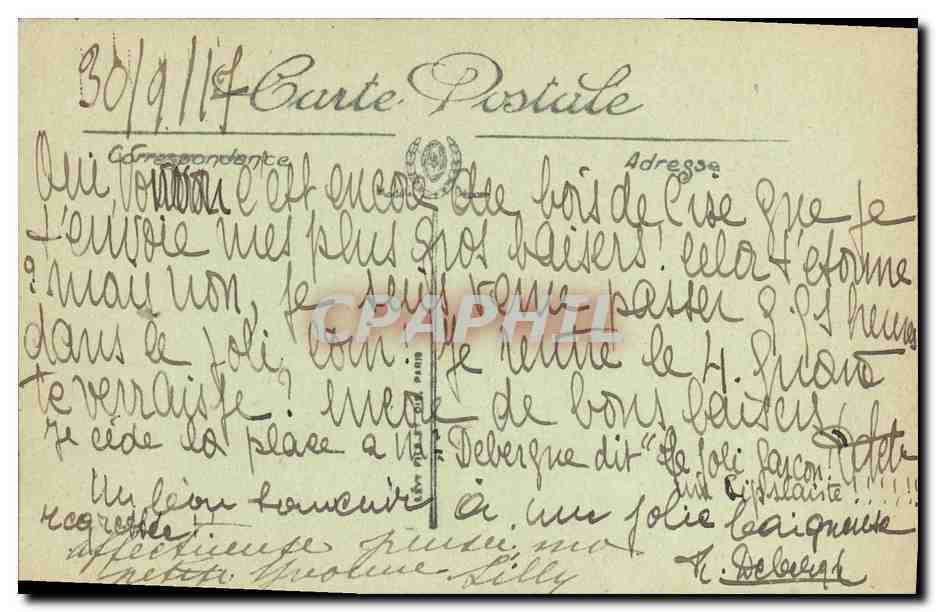 30/9/17
Carte Postale
Correspondance Adresse
Oui, c'est encore du bois de Cise que je
t'envoie mes plus gros baisers! Cela t'étonne
? mais non, je suis venue passer q.qs heures
dans ce joli coin. Je rentre le 4. Quand
te verrai-je? Encore de bons baisers
Je cède la place a Mr Debergue dit "Le joli garçon!
Un bon souvenir à un jolie baigneuse
regrettée!!
affectueuse pensée ma
petite Yvonne Lilly
LEVY FILS ET CIE, PARIS
CPAPHIL